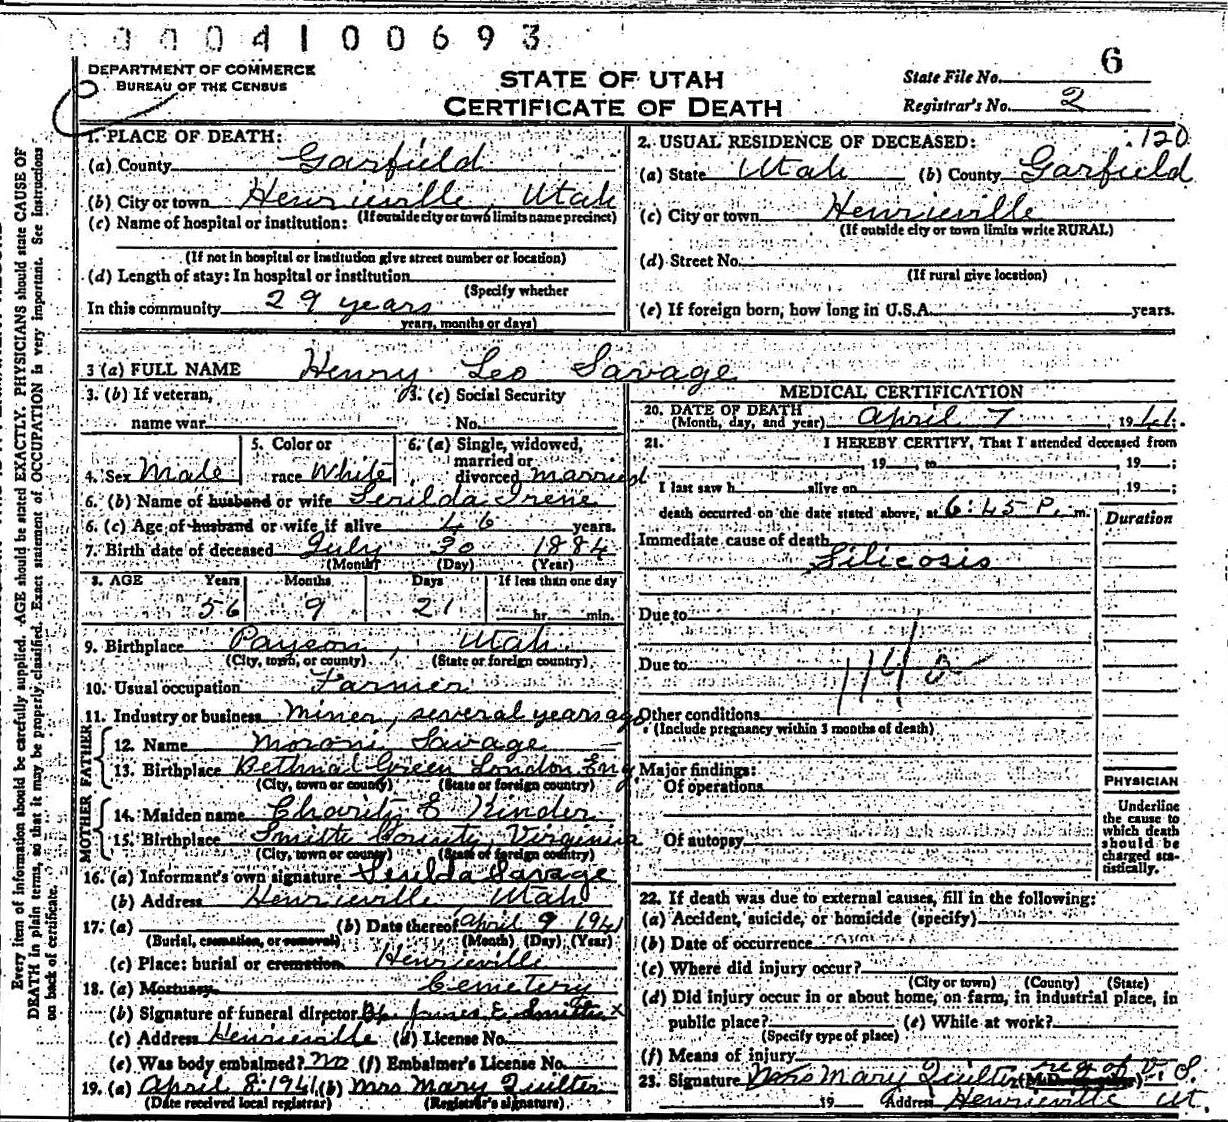 0004100693
DEPARTMENT OF COMMERCE
BUREAU OF THE CENSUS
STATE OF UTAH
CERTIFICATE OF DEATH
State File No. 6
Registrar's No. 2
1. PLACE OF DEATH:
(a) County Garfield
(b) City or town Henrieville, Utah
(If outside city or town limits name precinct)
(c) Name of hospital or institution:
(If not in hospital or institution give street number or location)
(d) Length of stay: In hospital or institution
(Specify whether
In this community 29 years
years, months or days)
120
2. USUAL RESIDENCE OF DECEASED:
(a) State Utah (b) County Garfield
(c) City or town Henrieville
(If outside city or town limits write RURAL)
(d) Street No.
(If rural give location)
(e) If foreign born, how long in U.S.A. years.
3 (a) FULL NAME Henry Leo Savage
3. (b) If veteran,
name war
3. (c) Social Security
No.
4. Sex Male
5. Color or
race White
6. (a) Single, widowed,
married or
divorced married
6. (b) Name of husband or wife Serilda Irene
6. (c) Age of husband or wife if alive 46 years.
7. Birth date of deceased July 30 1884
(Month) (Day) (Year)
8. AGE Years Months Days If less than one day
56 9 21 hr. min.
9. Birthplace Payson, Utah
(City, town, or county) (State or foreign country)
10. Usual occupation Farmer
11. Industry or business Miner, several years ago
FATHER
12. Name Moroni Savage
13. Birthplace Bethnal Green London Eng
(City, town or county) (State or foreign country)
MOTHER
14. Maiden name Charity E Kinder
15. Birthplace Smith County, Virginia
(City, town or county) (State or foreign country)
16. (a) Informant's own signature Serilda Savage
(b) Address Henrieville, Utah
17. (a) (b) Date thereof April 9 1941
(Burial, cremation, or removal) (Month) (Day) (Year)
(c) Place: burial or cremation Henrieville
18. (a) Mortuary Cemetery
(b) Signature of funeral director Bp. James E. x
(c) Address Henrieville (d) License No.
(e) Was body embalmed? No (f) Embalmer's License No.
19. (a) April 8 : 1941 (b) Mrs Mary Quilter
(Date received local registrar) (Registrar's signature)
MEDICAL CERTIFICATION
20. DATE OF DEATH
(Month, day, and year) April 7 1941.
21. I HEREBY CERTIFY, That I attended deceased from
19 , to 19 ;
I last saw h alive on 19 ;
death occurred on the date stated above, at 6:45 P. m.
Duration
Immediate cause of death
Silicosis
Due to
Due to
114
Other conditions
(Include pregnancy within 3 months of death)
Major findings:
Of operations
Of autopsy
PHYSICIAN
Underline
the cause to
which death
should be
charged sta-
tistically.
22. If death was due to external causes, fill in the following:
(a) Accident, suicide, or homicide (specify)
(b) Date of occurrence
(c) Where did injury occur?
(City or town) (County) (State)
(d) Did injury occur in or about home, on farm, in industrial place, in
public place? (e) While at work?
(Specify type of place)
(f) Means of injury
23. Signature Mrs Mary Quilter reg of V. S.
19 Address Henrieville Ut.
Every item of information should be carefully supplied. AGE should be stated EXACTLY. PHYSICIANS should state CAUSE OF
DEATH in plain terms, so that it may be properly classified. Exact statement of OCCUPATION is very important. See instructions
on back of certificate.